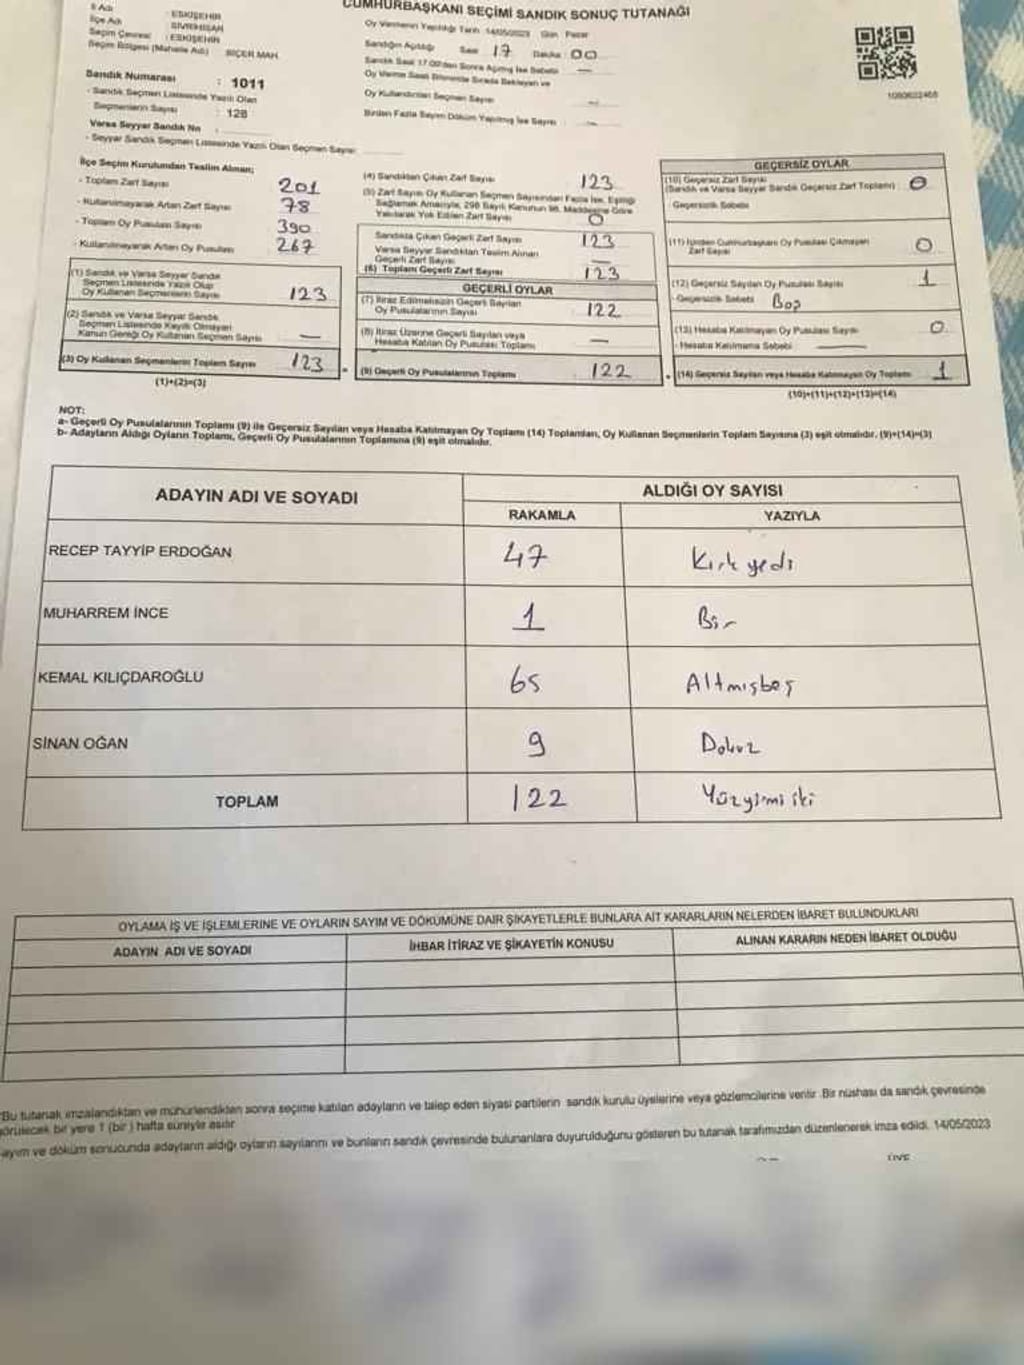 CUMHURBAŞKANI SEÇİMİ SANDIK SONUÇ TUTANAĞI
İl Adı : ESKİŞEHİR
İlçe Adı SİVRİHİSAR
Seçim Çevresi : ESKİŞEHİR
Seçim Bölgesi (Mahalle Adı) BİÇER MAH.
Sandık Numarası : 1011
- Sandık Seçmen Listesinde Yazılı Olan
Seçmenlerin Sayısı : 128
Varsa Seyyar Sandık No :
- Seyyar Sandık Seçmen Listesinde Yazılı Olan Seçmen Sayısı:
Oy Vermenin Yapıldığı Tarih 14/05/2023 Gün Pazar
Sandığın Açıldığı Saat 17 Dakika 00
Sandık Saat 17:00'den Sonra Açılmış İse Sebebi —
Oy Verme Saati Bitiminde Sırada Bekleyen ve
Oy Kullandırılan Seçmen Sayısı —
Birden Fazla Sayım Döküm Yapılmış İse Sayısı : —
1080602468
İlçe Seçim Kurulundan Teslim Alınan;
- Toplam Zarf Sayısı 201
- Kullanılmayarak Artan Zarf Sayısı 78
- Toplam Oy Pusulası Sayısı 390
- Kullanılmayarak Artan Oy Pusulası 267
(1) Sandık ve Varsa Seyyar Sandık
Seçmen Listesinde Yazılı Olup
Oy Kullanan Seçmenlerin Sayısı 123
(2) Sandık ve Varsa Seyyar Sandık
Seçmen Listesinde Kayıtlı Olmayan
Kanun Gereği Oy Kullanan Seçmen Sayısı —
(3) Oy Kullanan Seçmenlerin Toplam Sayısı 123
(1)+(2)=(3)
(4) Sandıktan Çıkan Zarf Sayısı 123
(5) Zarf Sayısı Oy Kullanan Seçmen Sayısından Fazla İse, Eşitliği
Sağlamak Amacıyla, 298 Sayılı Kanunun 98. Maddesine Göre
Yakılarak Yok Edilen Zarf Sayısı 0
Sandıkta Çıkan Geçerli Zarf Sayısı 123
Varsa Seyyar Sandıktan Teslim Alınan
Geçerli Zarf Sayısı —
(6) Toplam Geçerli Zarf Sayısı 123
GEÇERLİ OYLAR
(7) İtiraz Edilmeksizin Geçerli Sayılan
Oy Pusulalarının Sayısı 122
(8) İtiraz Üzerine Geçerli Sayılan veya
Hesaba Katılan Oy Pusulası Toplamı —
(9) Geçerli Oy Pusulalarının Toplamı 122
GEÇERSİZ OYLAR
(10) Geçersiz Zarf Sayısı
(Sandık ve Varsa Seyyar Sandık Geçersiz Zarf Toplamı) 0
- Geçersizlik Sebebi
(11) İçinden Cumhurbaşkanı Oy Pusulası Çıkmayan
Zarf Sayısı 0
(12) Geçersiz Sayılan Oy Pusulası Sayısı 1
- Geçersizlik Sebebi Boş
(13) Hesaba Katılmayan Oy Pusulası Sayısı 0
- Hesaba Katılmama Sebebi —
(14) Geçersiz Sayılan veya Hesaba Katılmayan Oy Toplamı 1
(10)+(11)+(12)+(13)=(14)
NOT:
a- Geçerli Oy Pusulalarının Toplamı (9) ile Geçersiz Sayılan veya Hesaba Katılmayan Oy Toplamı (14) Toplamları, Oy Kullanan Seçmenlerin Toplam Sayısına (3) eşit olmalıdır. (9)+(14)=(3)
b- Adayların Aldığı Oyların Toplamı, Geçerli Oy Pusulalarının Toplamına (9) eşit olmalıdır.
ADAYIN ADI VE SOYADI ALDIĞI OY SAYISI
RAKAMLA YAZIYLA
RECEP TAYYİP ERDOĞAN 47 Kırkyedi
MUHARREM İNCE 1 Bir
KEMAL KILIÇDAROĞLU 65 Altmışbeş
SİNAN OĞAN 9 Dokuz
TOPLAM 122 Yüzyirmi iki
OYLAMA İŞ VE İŞLEMLERİNE VE OYLARIN SAYIM VE DÖKÜMÜNE DAİR ŞİKAYETLERLE BUNLARA AİT KARARLARIN NELERDEN İBARET BULUNDUKLARI
ADAYIN ADI VE SOYADI İHBAR İTİRAZ VE ŞİKAYETİN KONUSU ALINAN KARARIN NEDEN İBARET OLDUĞU
Bu tutanak imzalandıktan ve mühürlendikten sonra seçime katılan adayların ve talep eden siyasi partilerin sandık kurulu üyelerine veya gözlemcilerine verilir. Bir nüshası da sandık çevresinde
görülecek bir yere 1 (bir) hafta süreyle asılır
ayım ve döküm sonucunda adayların aldığı oyların sayılarını ve bunların sandık çevresinde bulunanlara duyurulduğunu gösteren bu tutanak tarafımızdan düzenlenerek imza edildi. 14/05/2023
ÜYE